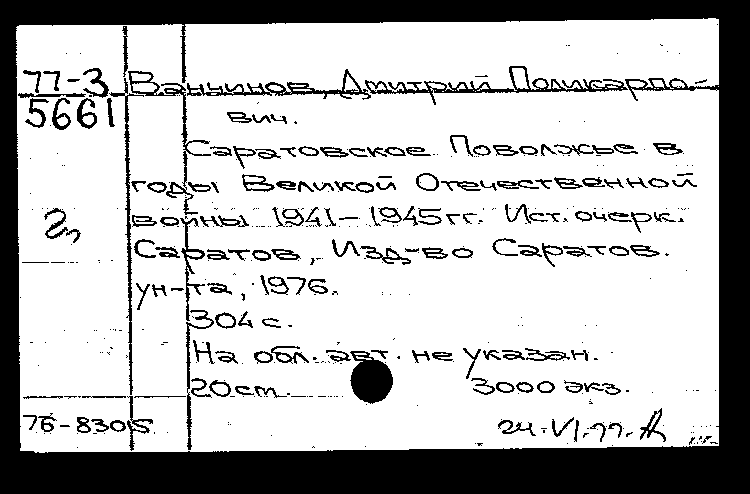 77-3 Ванчинов, Дмитрий Поликарпо-
5661 вич.
Саратовское Поволжье в
годы Великой Отечественной
войны 1941-1945 гг. Ист. очерк.
Саратов, Изд-во Саратов.
ун-та, 1976.
304 с.
На обл. авт. не указан.
20 см. 3000 экз.
76-8305 24.VI.77.